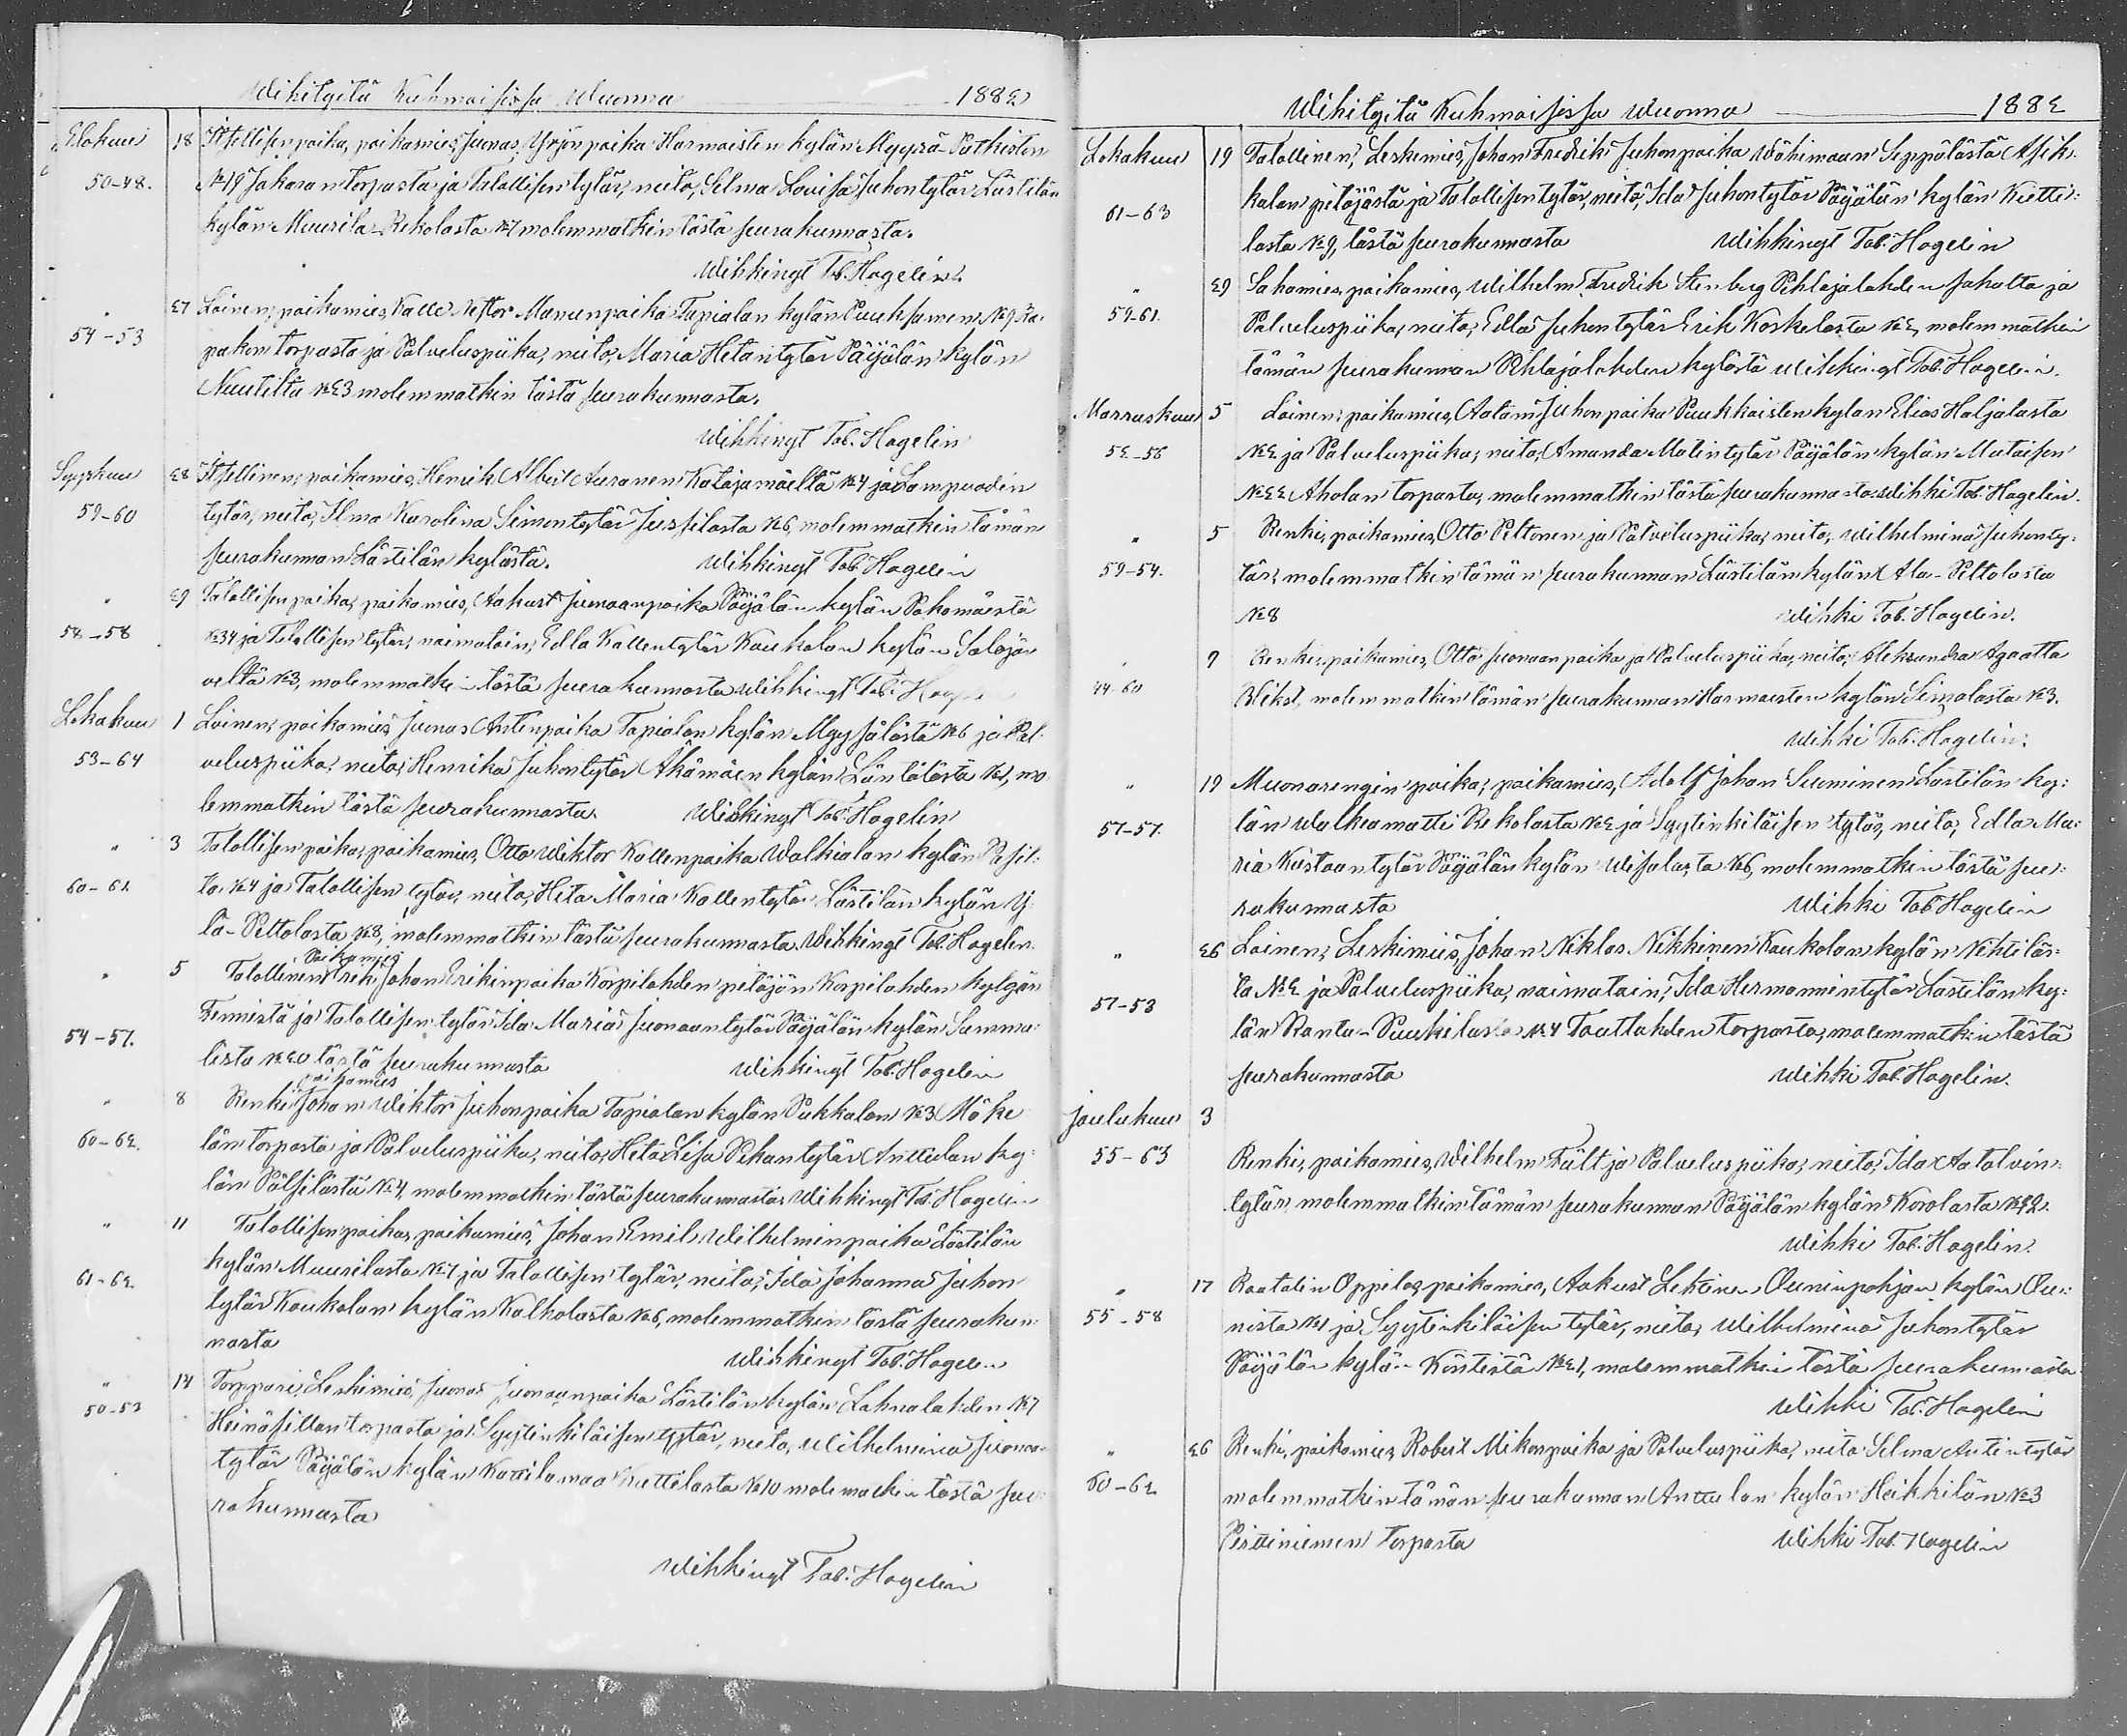 Wihityitä Kuhmaisissa Wuonna 1882
Elokuu 18 Itsellisen poika, poikamies, Juonas Yrjön poika Harmaisten kylän Myyrä-Patkisten
50-48. №19 Jakaran torpasta ja Talollisen tytär, neito, Selma Lovisa Juhontytär Lästilän
kylän Muurila-Rekolasta №7 molemmatkin tästä seurakunnasta.
Wihkinyt Tob. Hagelin.
" 27 Loinen, poikamies, Kalle Nestor Manunpoika Tapialan kylän Puuksamen №9 Ra-
54-53 pakon torpasta ja Palveluspiika, neito, Maria Hetantytär Päyjälän kylän
Nuutilta №23 molemmatkin tästä seurakunnasta.
Wihkinyt Tob. Hagelin
Syyskuu 28 Itsellinen, poikamies, Henrik Albert Auranen Katajamäeltä №4 ja Lampuodin
59-60 tytär, neito, Ilma Karolina Simontytär Jussilasta №6, molemmatkin tämän
seurakunnan Lästilän kylästä. Wihkinyt Tob. Hagelin
" 29 Talollisen poika, poikamies, Aukust Juonaanpoika Päyjälän kylän Pakomäestä
58-58 №34 ja Talollisen tytär, naimatoin, Edla Kallentytär Kaukolan kylän Salojär
veltä №3, molemmatkin tästä seurakunnasta Wihkinyt Tob. Hagelin
Lokakuu 1 Loinen, poikamies Juonas Antinpoika Tapialan kylän Myysälästä №6 ja Pal-
53-64 veluspiika, neito, Henrika Juhontytär Äkämäen kylän Läntälästä №1, mo
lemmatkin tästä seurakunnasta. Wihkinyt Tob. Hagelin
" 3 Talollisen poika, poikamies, Otto Wiktor Kallenpoika Walkialan kylän Pesil-
60-62 ta №4 ja Talollisen tytär, neito, Heta Maria Kallentytär Lästilän kylän Y-
lä-Peltolasta №8, molemmatkin tästä seurakunnasta. Wihkinyt Tob. Hagelin.
Poikamies
" 5 Talollinen Erik Johan Erikinpoika Korpilahden pitäjän Korpilahden kylyän
54-57. Tennistä ja Talollisen tytär Ida Maria Juonaantytär Päyjälän kylän Samma-
lista №20 tästä seurakunnasta Wihkinyt Tob. Hagelin
poikamies
" 8 Renki Johan Wiktor Juhonpoika Tapialan kylän Pukkalan №3 Mäke
60-62. län torpasta ja Palveluspiika, neito, Heta Lisa Pekantytär Anttulan ky-
län Pälsilästä №4, molemmatkin tästä seurakunnasta. Wihkinyt Tob. Hagelin
" 11 Talollisen poika, poikamies, Johan Emil Wilhelminpoika Lästilän
61-62. kylän Muurilasta №7 ja Talollisen tytär, neito, Ida Johanna Juhon
tytär Kaukolan kylän Kalholasta №6, molemmatkin tästä seurakun-
nasta Wihkinyt Tob. Hagelin
" 14 Torppari, Leskimies, Juonas Juonaanpoika Lästilän kylän Lahnalahden №7
50-53 Heinäsillan torpasta ja Syytinkiläisen tytär, neito, Wilhelmina Juonas-
tytär Päyjälän kylän Kattilamaa Kuttilasta №10 molemmatkin tästä seu-
rakunnasta
Wihkinyt Tob. Hagelin
Wihityitä Kuhmaisissa Wuonna 1882
Lokakuu 19 Talollinen, Leskimies, Johan Fredrik Juhonpoika Wähimaan Seppälästä Asik-
61-63 kalan pitäjästä ja Talollisen tytär, neito, Ida Juhontytär Päyjälän kylän Kietti-
lasta №9, tästä seurakunnasta Wihkinyt Tob. Hagelin
" 29 Sahamies, poikamies, Wilhelm Fredrik Stenberg Pihlajalahden sahalta ja
59-61. Palveluspiika, neito, Edla Juhontytär Erik Koskelasta №2, molemmatkin
tämän seurakunnan Pihlajalahden kylästä Wihkinyt Tob. Hagelin.
Marraskuu 5 Loinen, poikamies, Aatami Juhonpoika Puukkaisten kylän Elias Haljalasta
52-56 №2 ja Palveluspiika, neito, Amanda Matintytär Päyjälän kylän Mutaisen
№22 Aholan torpasta, molemmatkin tästä seurakunnasta. Wihki Tob. Hagelin.
" 5 Renki, poikamies, Otto Peltonen ja Palveluspiika, neito, Wilhelmina Juhonty-
59-54. tär, molemmatkin tämän seurakunnan Lästilän kylän Ala-Peltolasta
№8 Wihki Tob. Hagelin.
" 9 Renki, poikamies, Otto Juonaanpoika ja Palveluspiika, neito, Aleksandra Agaatta
44-60 Blikst, molemmatkin tämän seurakunnan Harmaisten kylän Simolasta №3.
Wihki Tob. Hagelin.
" 19 Muonarengin poika, poikamies, Adolf Johan Suominen Lästilän ky-
57-57. län Walkiamatti Rekolasta №2 ja Syytinkiläisen tytär, neito, Edla Ma-
ria Kustaantytär Päyjälän kylän Wisalasta №6, molemmatkin tästä seu-
rakunnasta Wihki Tob. Hagelin
" 26 Loinen, Leskimies, Johan Niklas Nikkinen Kaukolan kylän Nihtilär-
57-53 ta №2 ja Palveluspiika, naimatoin, Ida Hermannintytär Lästilän ky-
län Ranta-Puukilasta №4 Tauttahden torpasta, molemmatkin tästä
seurakunnasta Wihki Tob. Hagelin.
Joulukuu 3
55-63 Renki, poikamies, Wilhelm Fält ja Palveluspiika, neito, Ida Aatalvin-
tytär, molemmatkin tämän seurakunnan Päyjälän kylän Korolasta №42.
Wihki Tob. Hagelin.
" 17 Raatalin Oppilas, poikamies, Aukust Lehtinen Auninpohjan kylän Au-
55-58 nista №1 ja Syytinkiläisen tytär, neito, Wilhelmina Juhontytär
Päyjälän kylän Köstistä №21, molemmatkin tästä seurakunnasta
Wihki Tob. Hagelin
" 26 Renki, poikamies, Robert Mikonpoika ja Palveluspiika, neito Selma Antintytär
60-62 molemmatkin tämän seurakunnan Anttulan kylän Heikkilän №3
Pistiniemen torpasta Wihki Tob. Hagelin